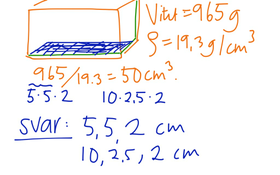 Vikt = 965 g
ρ = 19,3 g/cm³
965/19.3 = 50 cm³.
5·5·2   10·2,5·2
svar: 5,5,2 cm
10, 2,5, 2 cm